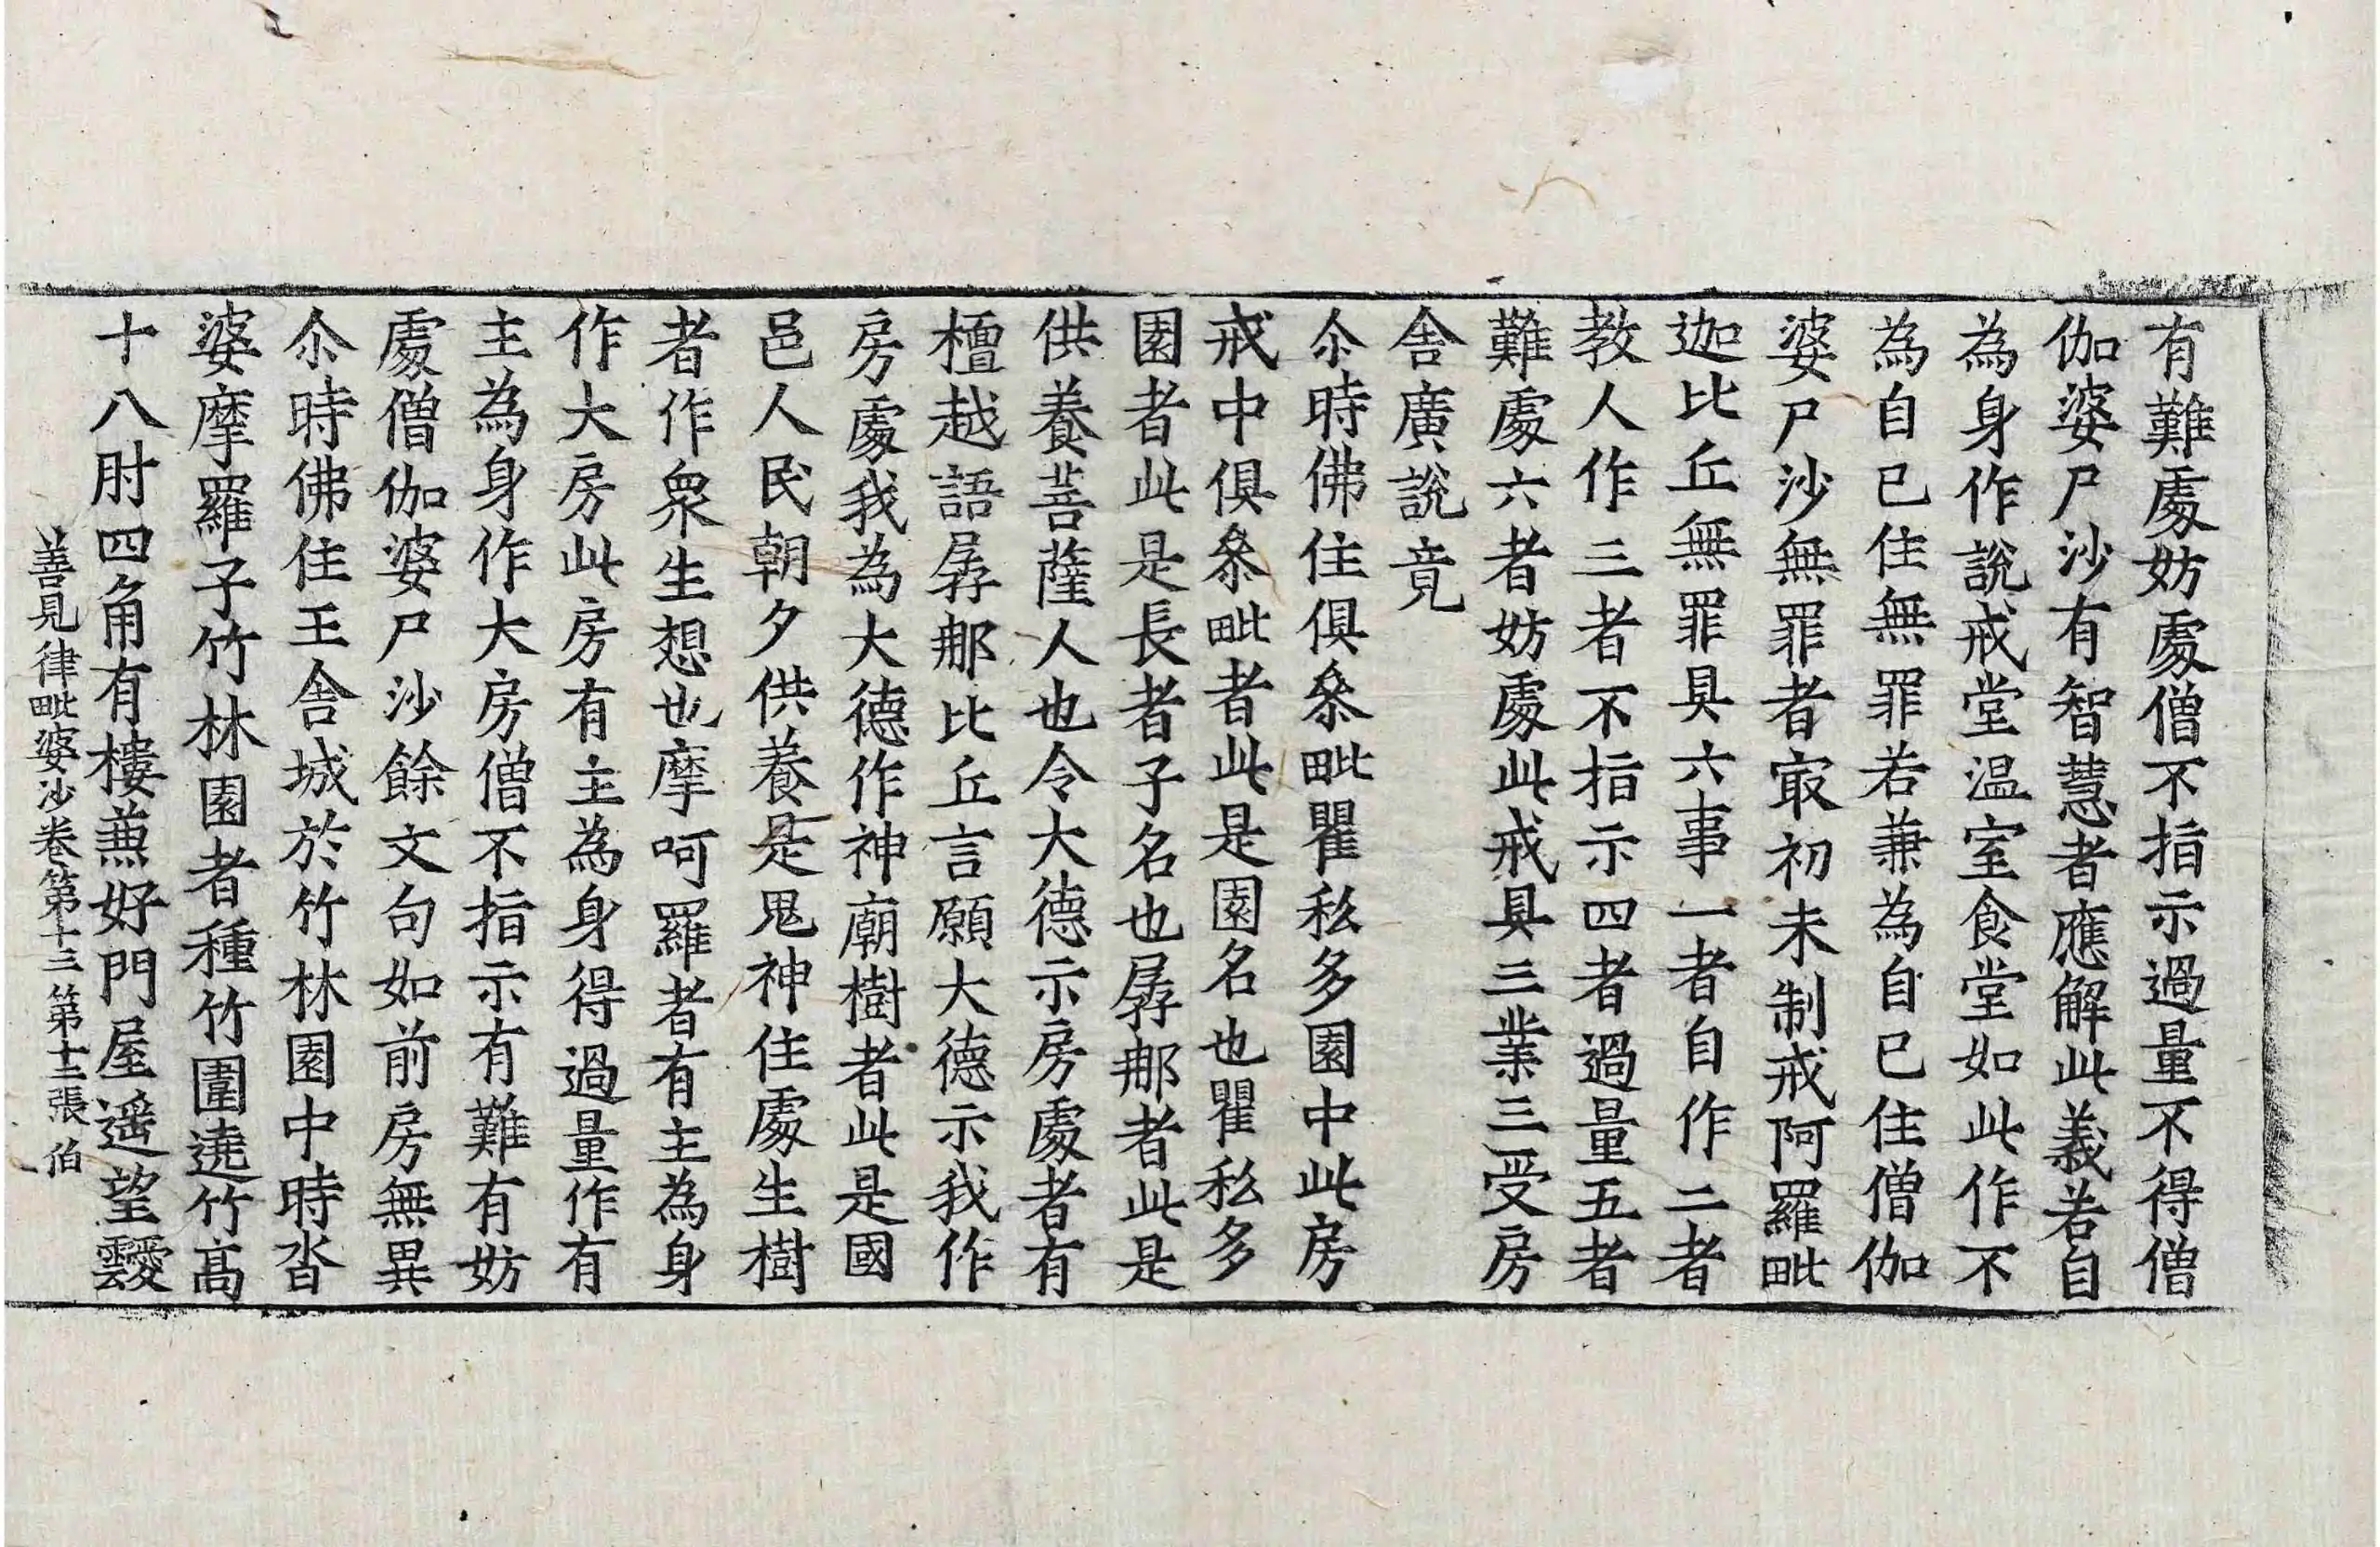 有難處妨處僧不指示過量不得僧
伽婆尸沙有智慧者應解此義若自
為身作說戒堂温室食堂如此作不
為自己住無罪若兼為自己住僧伽
婆尸沙無罪者㝡初未制戒阿羅毗
迦比丘無罪具六事一者自作二者
教人作三者不指示四者過量五者
難處六者妨處此戒具三業三受房
舍廣說竟
尒時佛住俱叅毗瞿私多園中此房
戒中俱叅毗者此是園名也瞿私多
園者此是長者子名也孱那者此是
供養菩薩人也令大德示房處者有
檀越語孱那比丘言願大德示我作
房處我為大德作神廟樹者此是國
邑人民朝夕供養是鬼神住處生樹
者作衆生想也摩呵羅者有主為身
作大房此房有主為身得過量作有
主為身作大房僧不指示有難有妨
處僧伽婆尸沙餘文句如前房無異
尒時佛住王舍城於竹林園中時沓
婆摩羅子竹林園者種竹圍遶竹髙
十八肘四角有樓兼好門屋遥望靉
善見律毗婆沙卷第十三 第十二張 伯